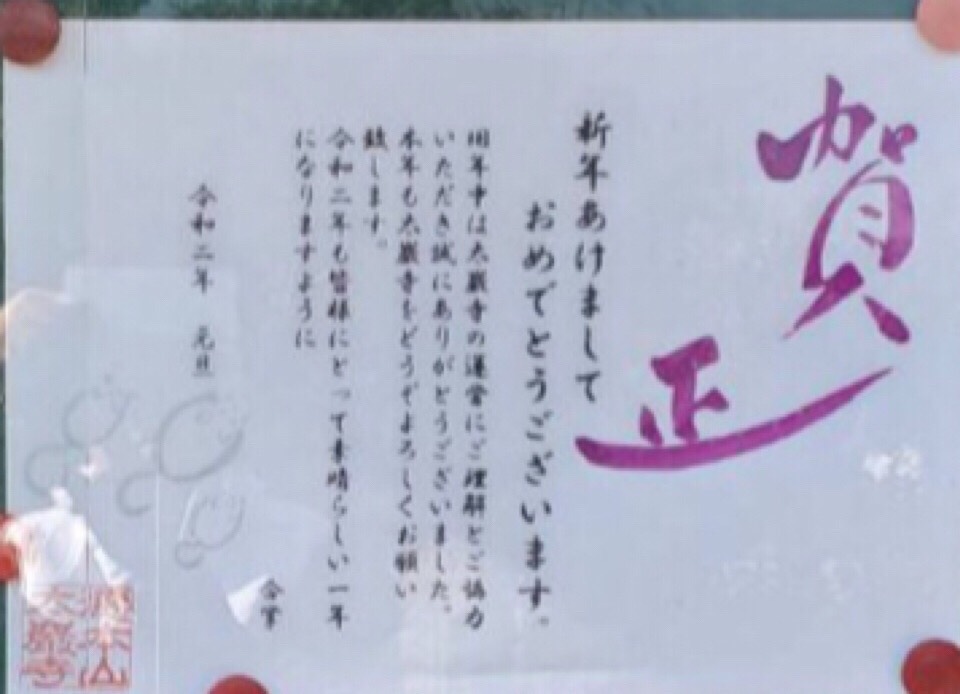 賀正
新年あけまして
おめでとうございます。
旧年中は太巌寺の運営にご理解とご協力
いただき誠にありがとうございました。
本年も太巌寺をどうぞよろしくお願い
致します。
令和二年も皆様にとって素晴らしい一年
になりますように
合掌
令和二年 元旦
太巌寺